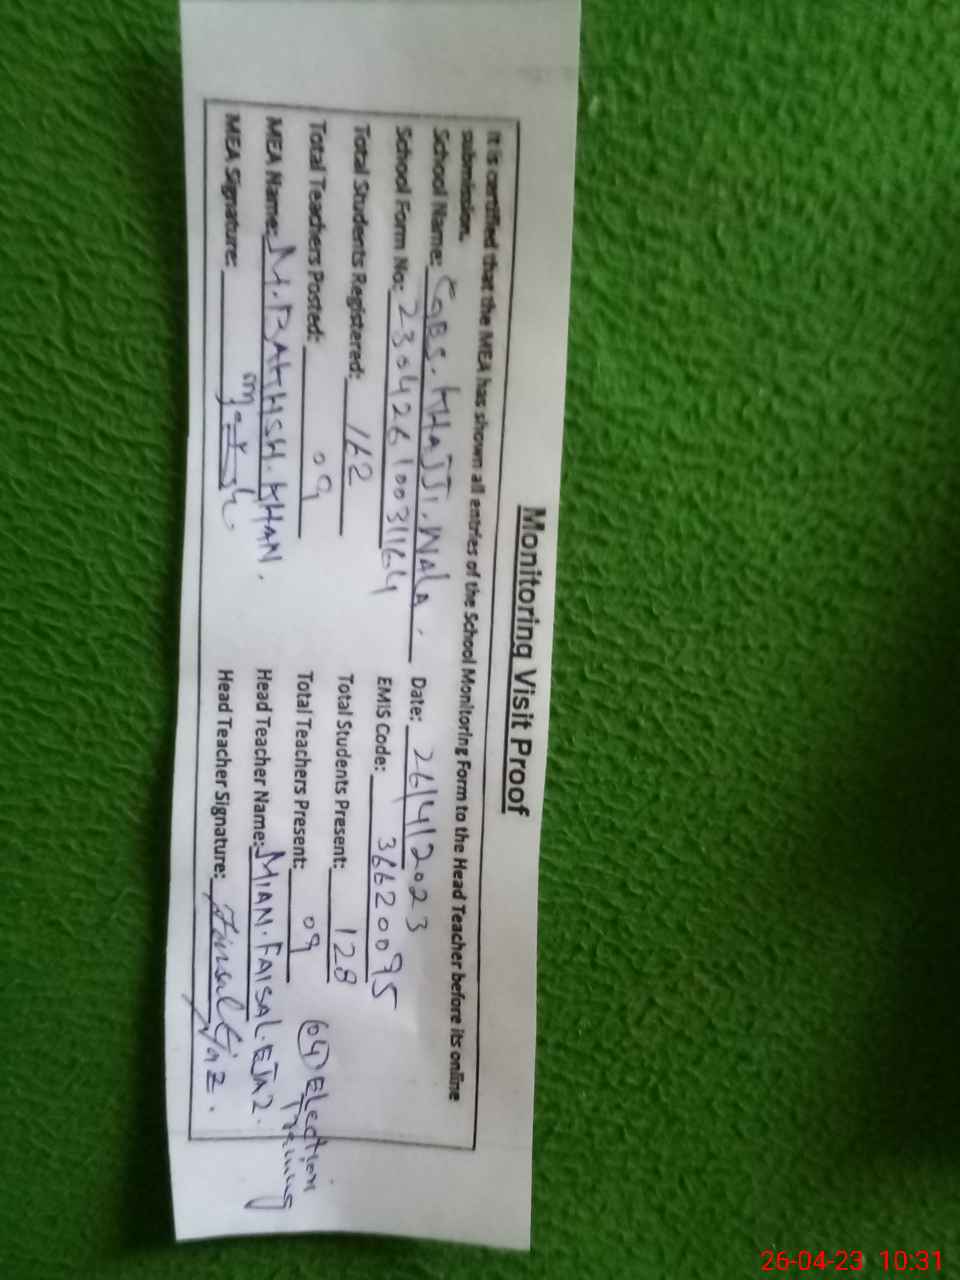 Monitoring Visit Proof
It is certified that the MEA has shown all entries of the School Monitoring Form to the Head Teacher before its online
submission.
School Name: GBS. KHAJJI. WALA. Date: 26/4/2023
School Form No: 23042610031164 EMIS Code: 36620095
Total Students Registered: 162 Total Students Present: 128
Total Teachers Posted: 09 Total Teachers Present: 09 (04) Election Training
MEA Name: M. BAKHSH. KHAN. Head Teacher Name: MIAN. FAISAL. EJAZ.
MEA Signature: Head Teacher Signature:
26-04-23 10:31